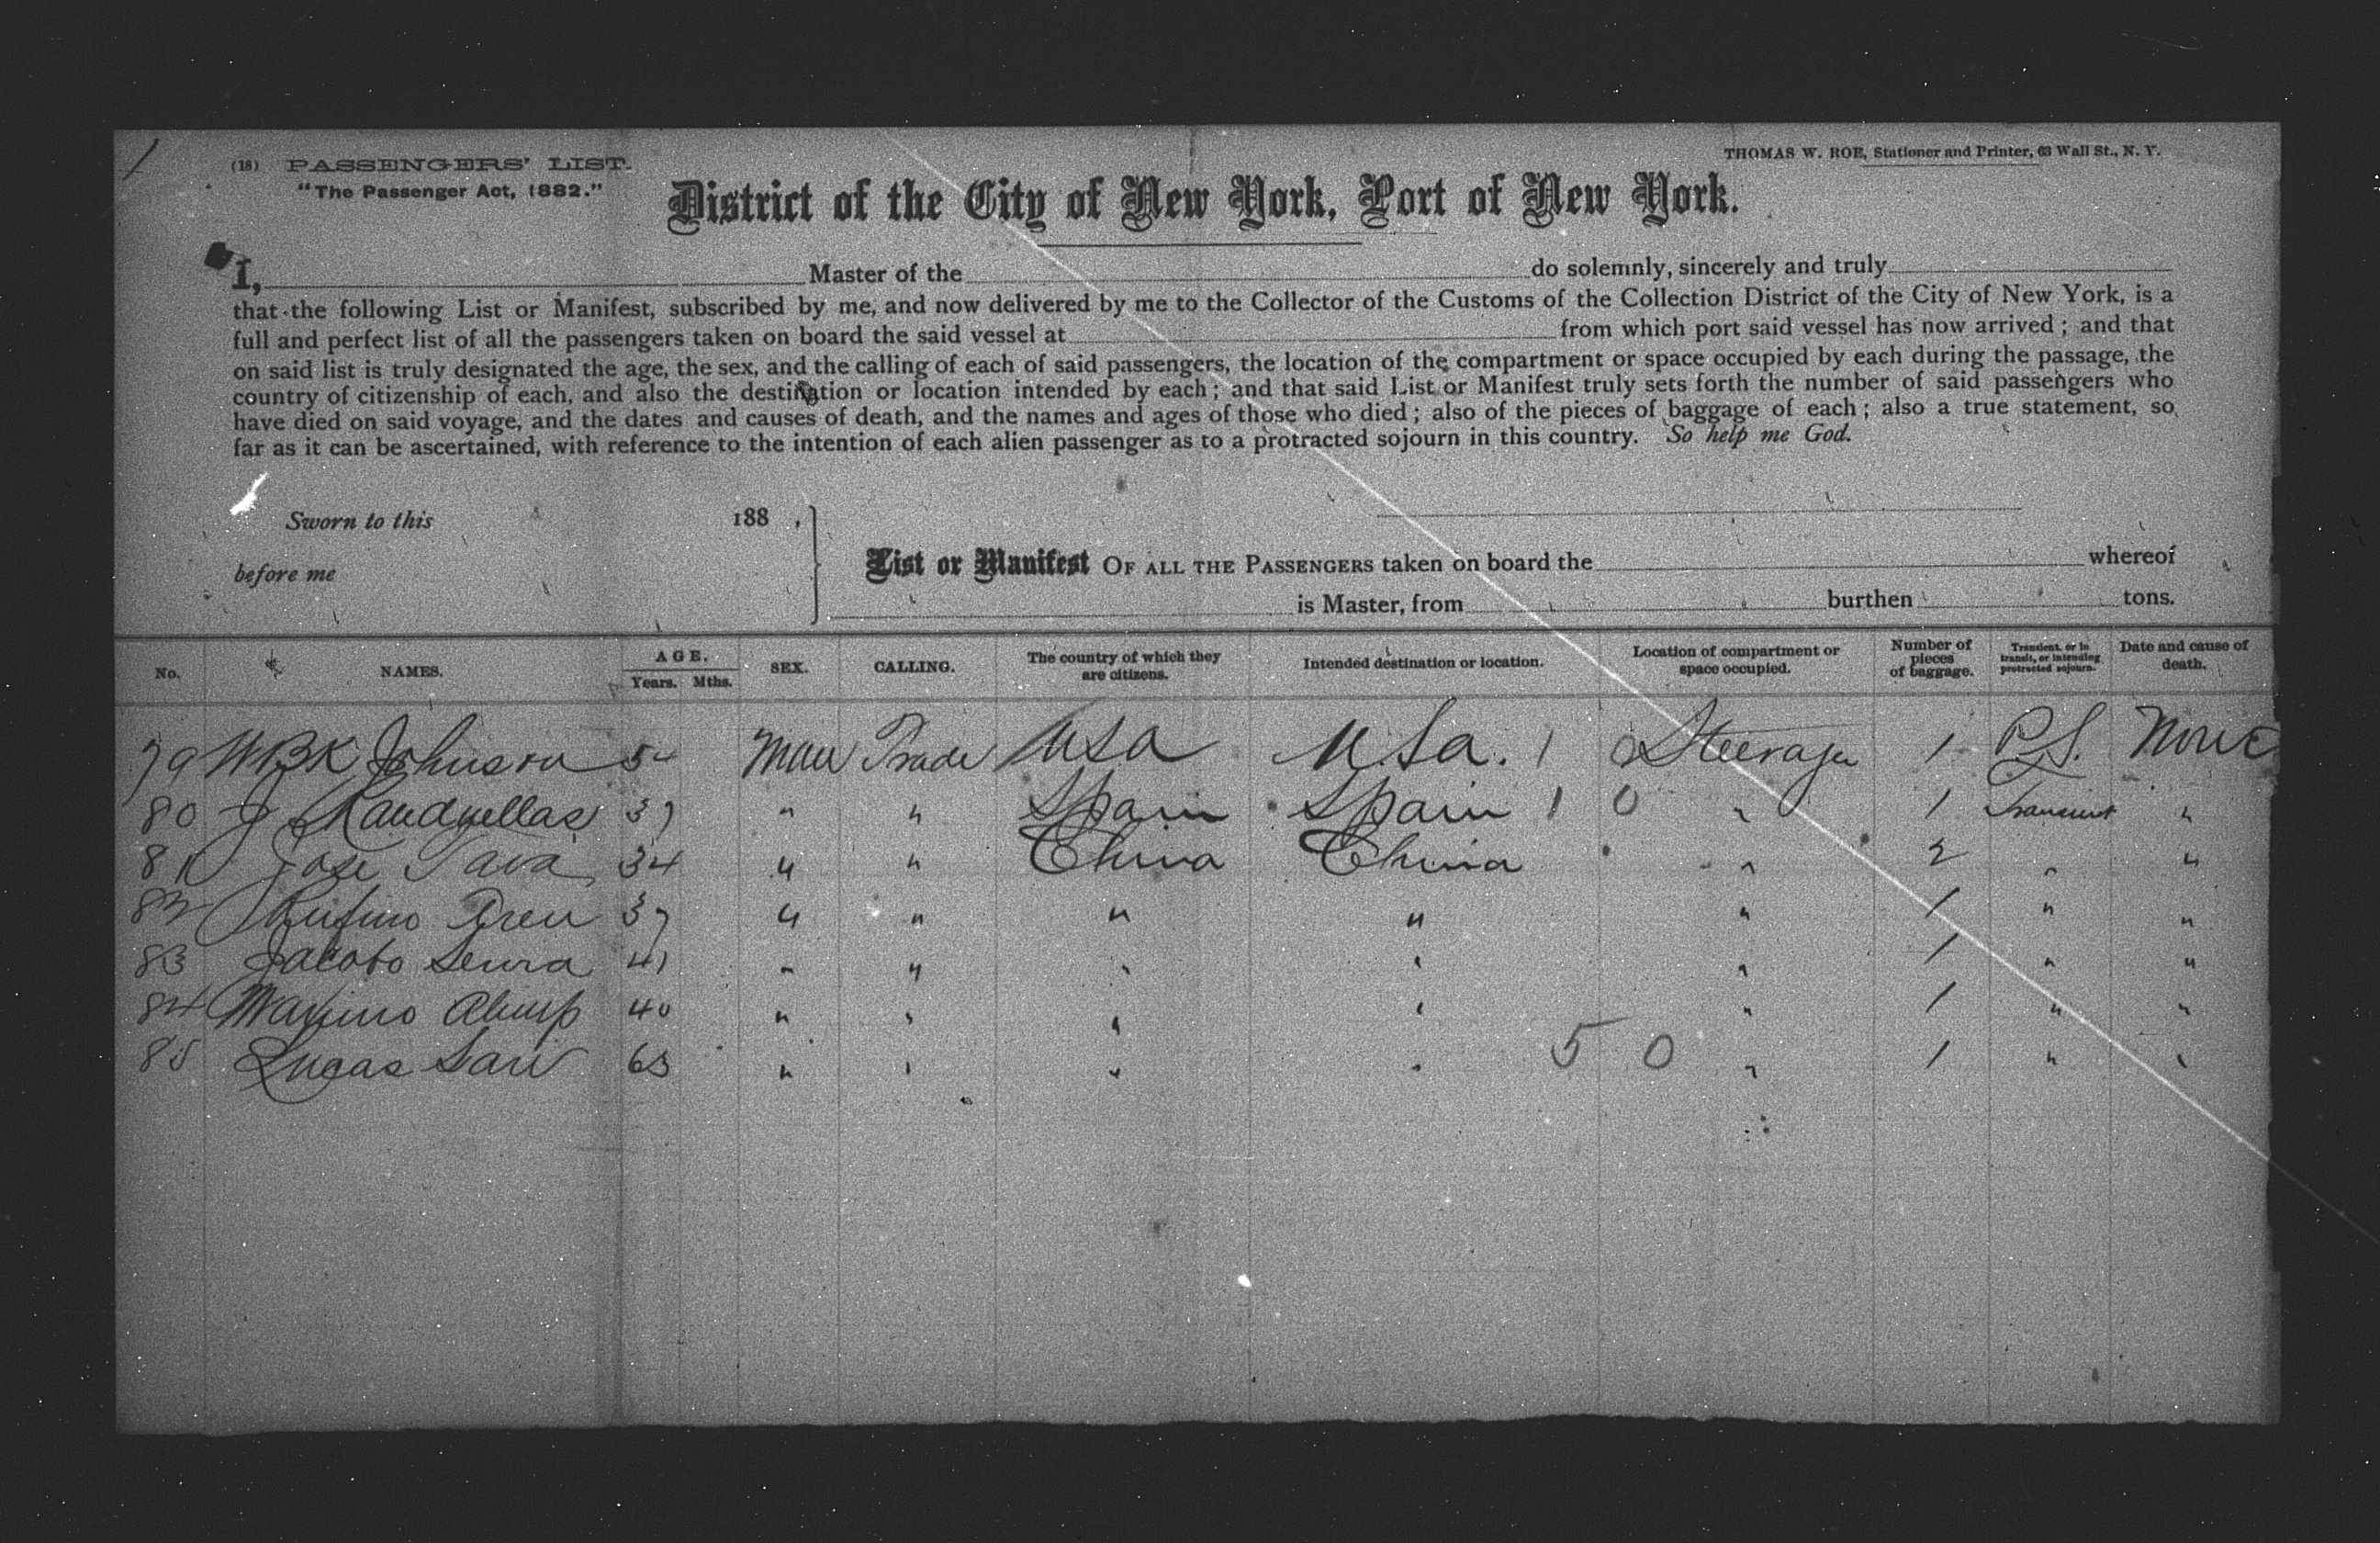 1
(18) PASSENGERS' LIST.
THOMAS W. ROE, Stationer and Printer, 63 Wall St., N. Y.
"The Passenger Act, 1882."
District of the City of New York, Port of New York.
I, Master of the do solemnly, sincerely and truly
that the following List or Manifest, subscribed by me, and now delivered by me to the Collector of the Customs of the Collection District of the City of New York, is a
full and perfect list of all the passengers taken on board the said vessel at from which port said vessel has now arrived; and that
on said list is truly designated the age, the sex, and the calling of each of said passengers, the location of the compartment or space occupied by each during the passage, the
country of citizenship of each, and also the destination or location intended by each; and that said List or Manifest truly sets forth the number of said passengers who
have died on said voyage, and the dates and causes of death, and the names and ages of those who died; also of the pieces of baggage of each; also a true statement, so
far as it can be ascertained, with reference to the intention of each alien passenger as to a protracted sojourn in this country. So help me God.
Sworn to this 188 ,
before me
List or Manifest OF ALL THE PASSENGERS taken on board the whereof
is Master, from burthen tons.
No. NAMES. AGE. Years. Mths. SEX. CALLING. The country of which they are citizens. Intended destination or location. Location of compartment or space occupied. Number of pieces of baggage. Transient, or in transit, or intending protracted sojourn. Date and cause of death.
79 WBK Johnson 54 Man Trade USA U.Sa. 1 0 Steerage 1 P.S. None
80 J 37 " " Spain Spain 1 0 " 1 Transient "
81 Jose Tava 34 " " China China " 2 " "
82 Rufino 37 " " " " " 1 " "
83 Jacobo 41 " " " " " 1 " "
84 Maximo 40 " " " " " 1 " "
85 Lucas 63 " " " " 5 0 " 1 " "